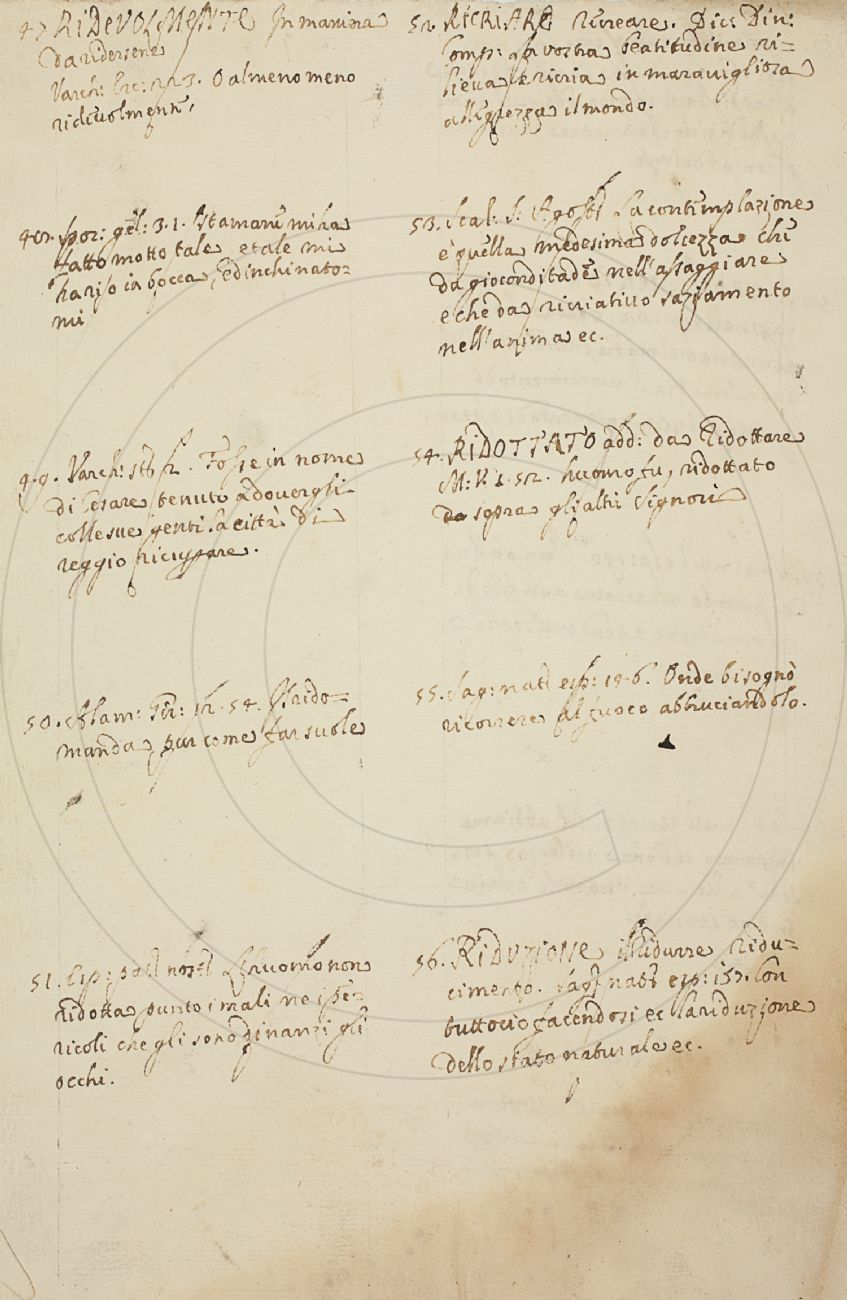 47. RIDEVOLMENTE In maniera
da ridersene
Varch: Erc: 223. O almeno meno
ridevolmente,
48. Spor: gel: 3.1. Istamani mi ha
fatto motto tale, e tale mi
ha riso in bocca, ed inchinato=
mi
49. Varch: st: 2. Fosse in nome
di Cesare tenuto a dovergli
colle sue genti la città di
reggio ricuperare.
50. Alam: Gir: 12. 54. Ridо=
manda, pur come far suole
51. Esp: pat: nost: L'huomo non
ridotta punto i mali ne i pe=
ricoli che gli sono dinanzi gli
occhi.
52. RICRIARE Ricreare. Dic: Din:
Comp: La vostra beatitudine ri=
lieva e ricria in maravigliosa
allegrezza il mondo.
53. Scal: S: Agost: La contemplazione
è quella medesima dolcezza che
da gioconditade nell'assaggiare
e che da ricriativo saziamento
nell'anima ec.
54. RIDOTTATO add: da Ridottare
M: V: 1. 52. huomo fu, ridottato
da sopra gli altri Signori
55. Sag: nat: esp: 156. Onde bisognò
ricorrere al fuoco abbruciandolo.
56. RIDUZIONE il ridurre Ridu=
cimento. Sag: nat: esp: 157. Con
tutto cio facendosi ec la riduzione
dello stato naturale ec.